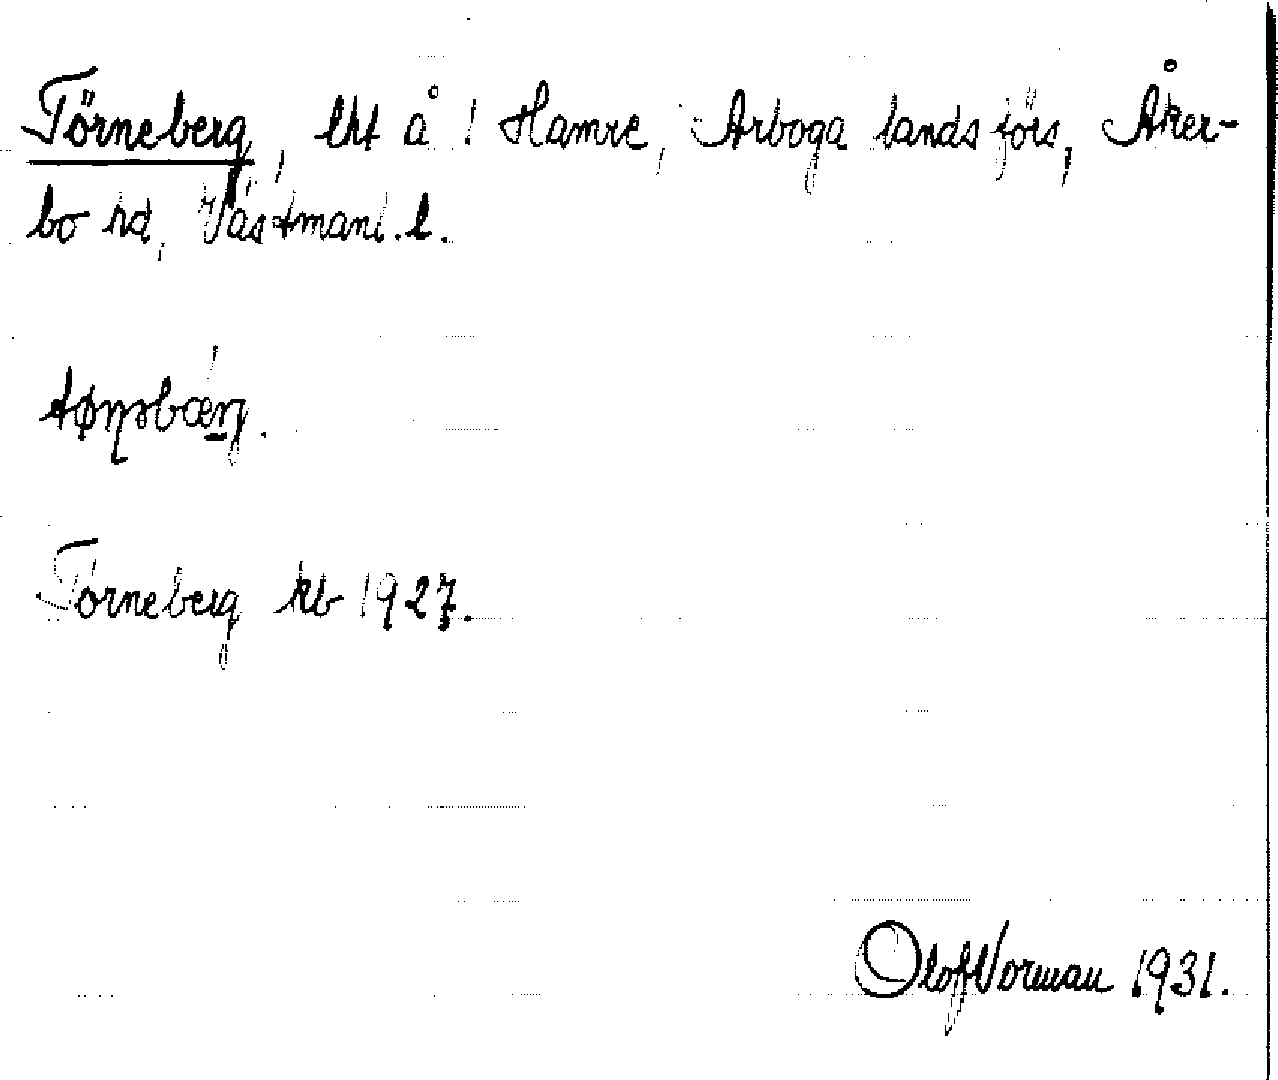 Törneberg, lht å ! Hamre, Arboga landsförs, Åker-
bo hd, Västmanl. l.
Törneberg kb 1927.
Olof Norman 1931.